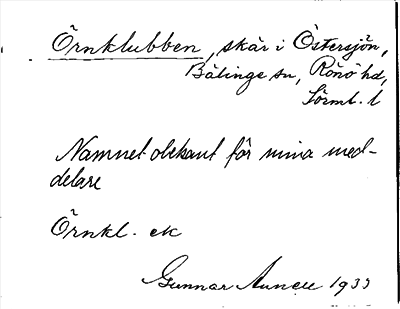 Örnklubben, skär i Östersjön,
Bälinge sn, Rönö hd,
Södml. l
Namnet obekant för mina med-
delare
Örnkl. ek
Gunnar 1933